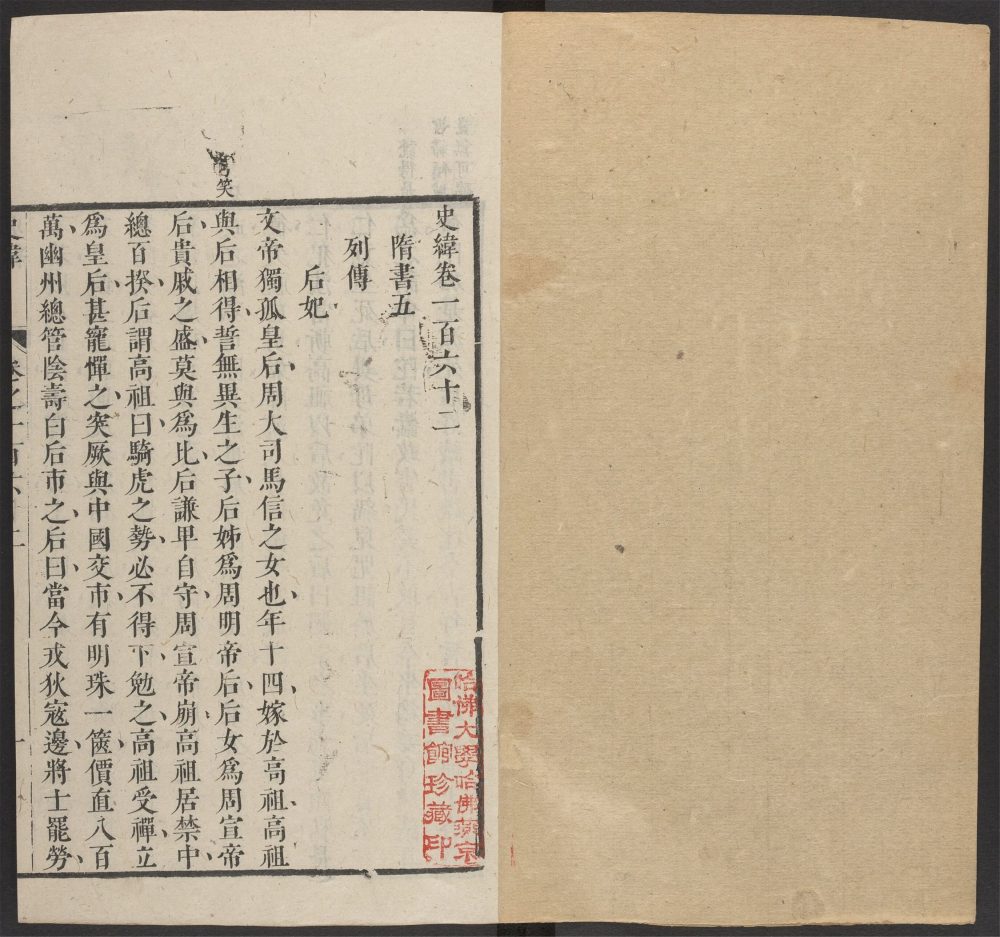 史緯卷一百六十二
隋書五
列傳
后妃
文帝獨孤皇后周大司馬信之女也年十四嫁於高祖高祖
與后相得誓無異生之子后姊爲周明帝后后女爲周宣帝
后貴戚之盛莫與爲比后謙卑自守周宣帝崩高祖居禁中
總百揆后謂高祖曰騎虎之勢必不得下勉之高祖受禪立
爲皇后甚寵憚之突厥與中國交市有明珠一篋價直八百
萬幽州總管陰壽白后市之后曰當今戎狄寇邊將士罷勞
史緯
卷之一百六十二
一
笑
哈佛大學哈佛燕京
圖書館珍藏印